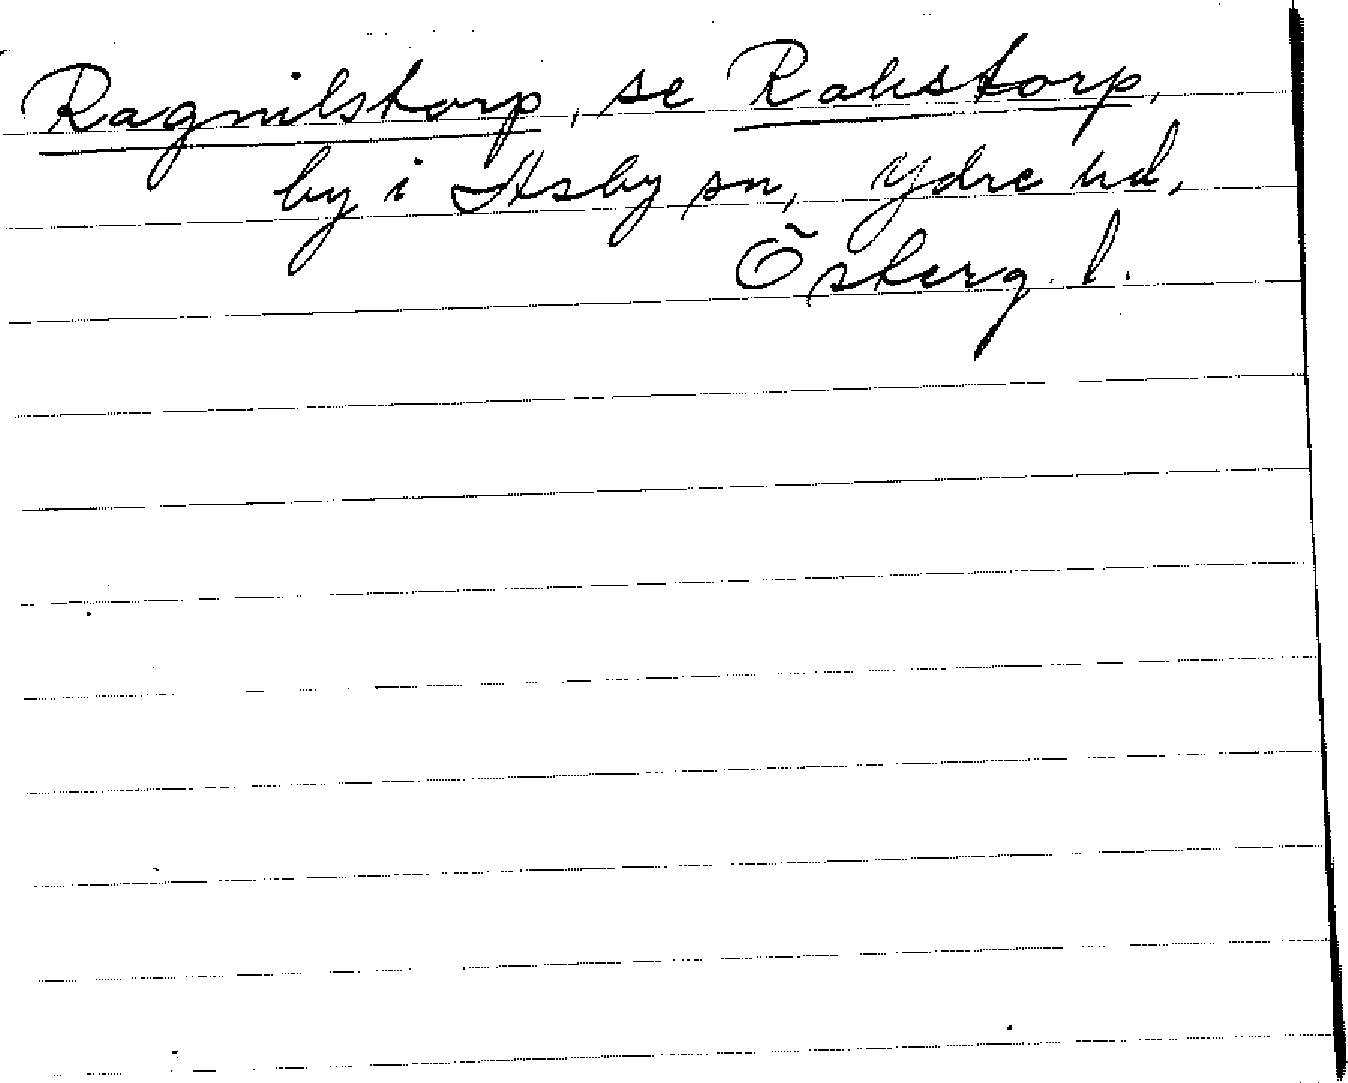 Ragnilstorp, se Rakstorp,
by i Asby sn, Ydre hd,
Österg. l.